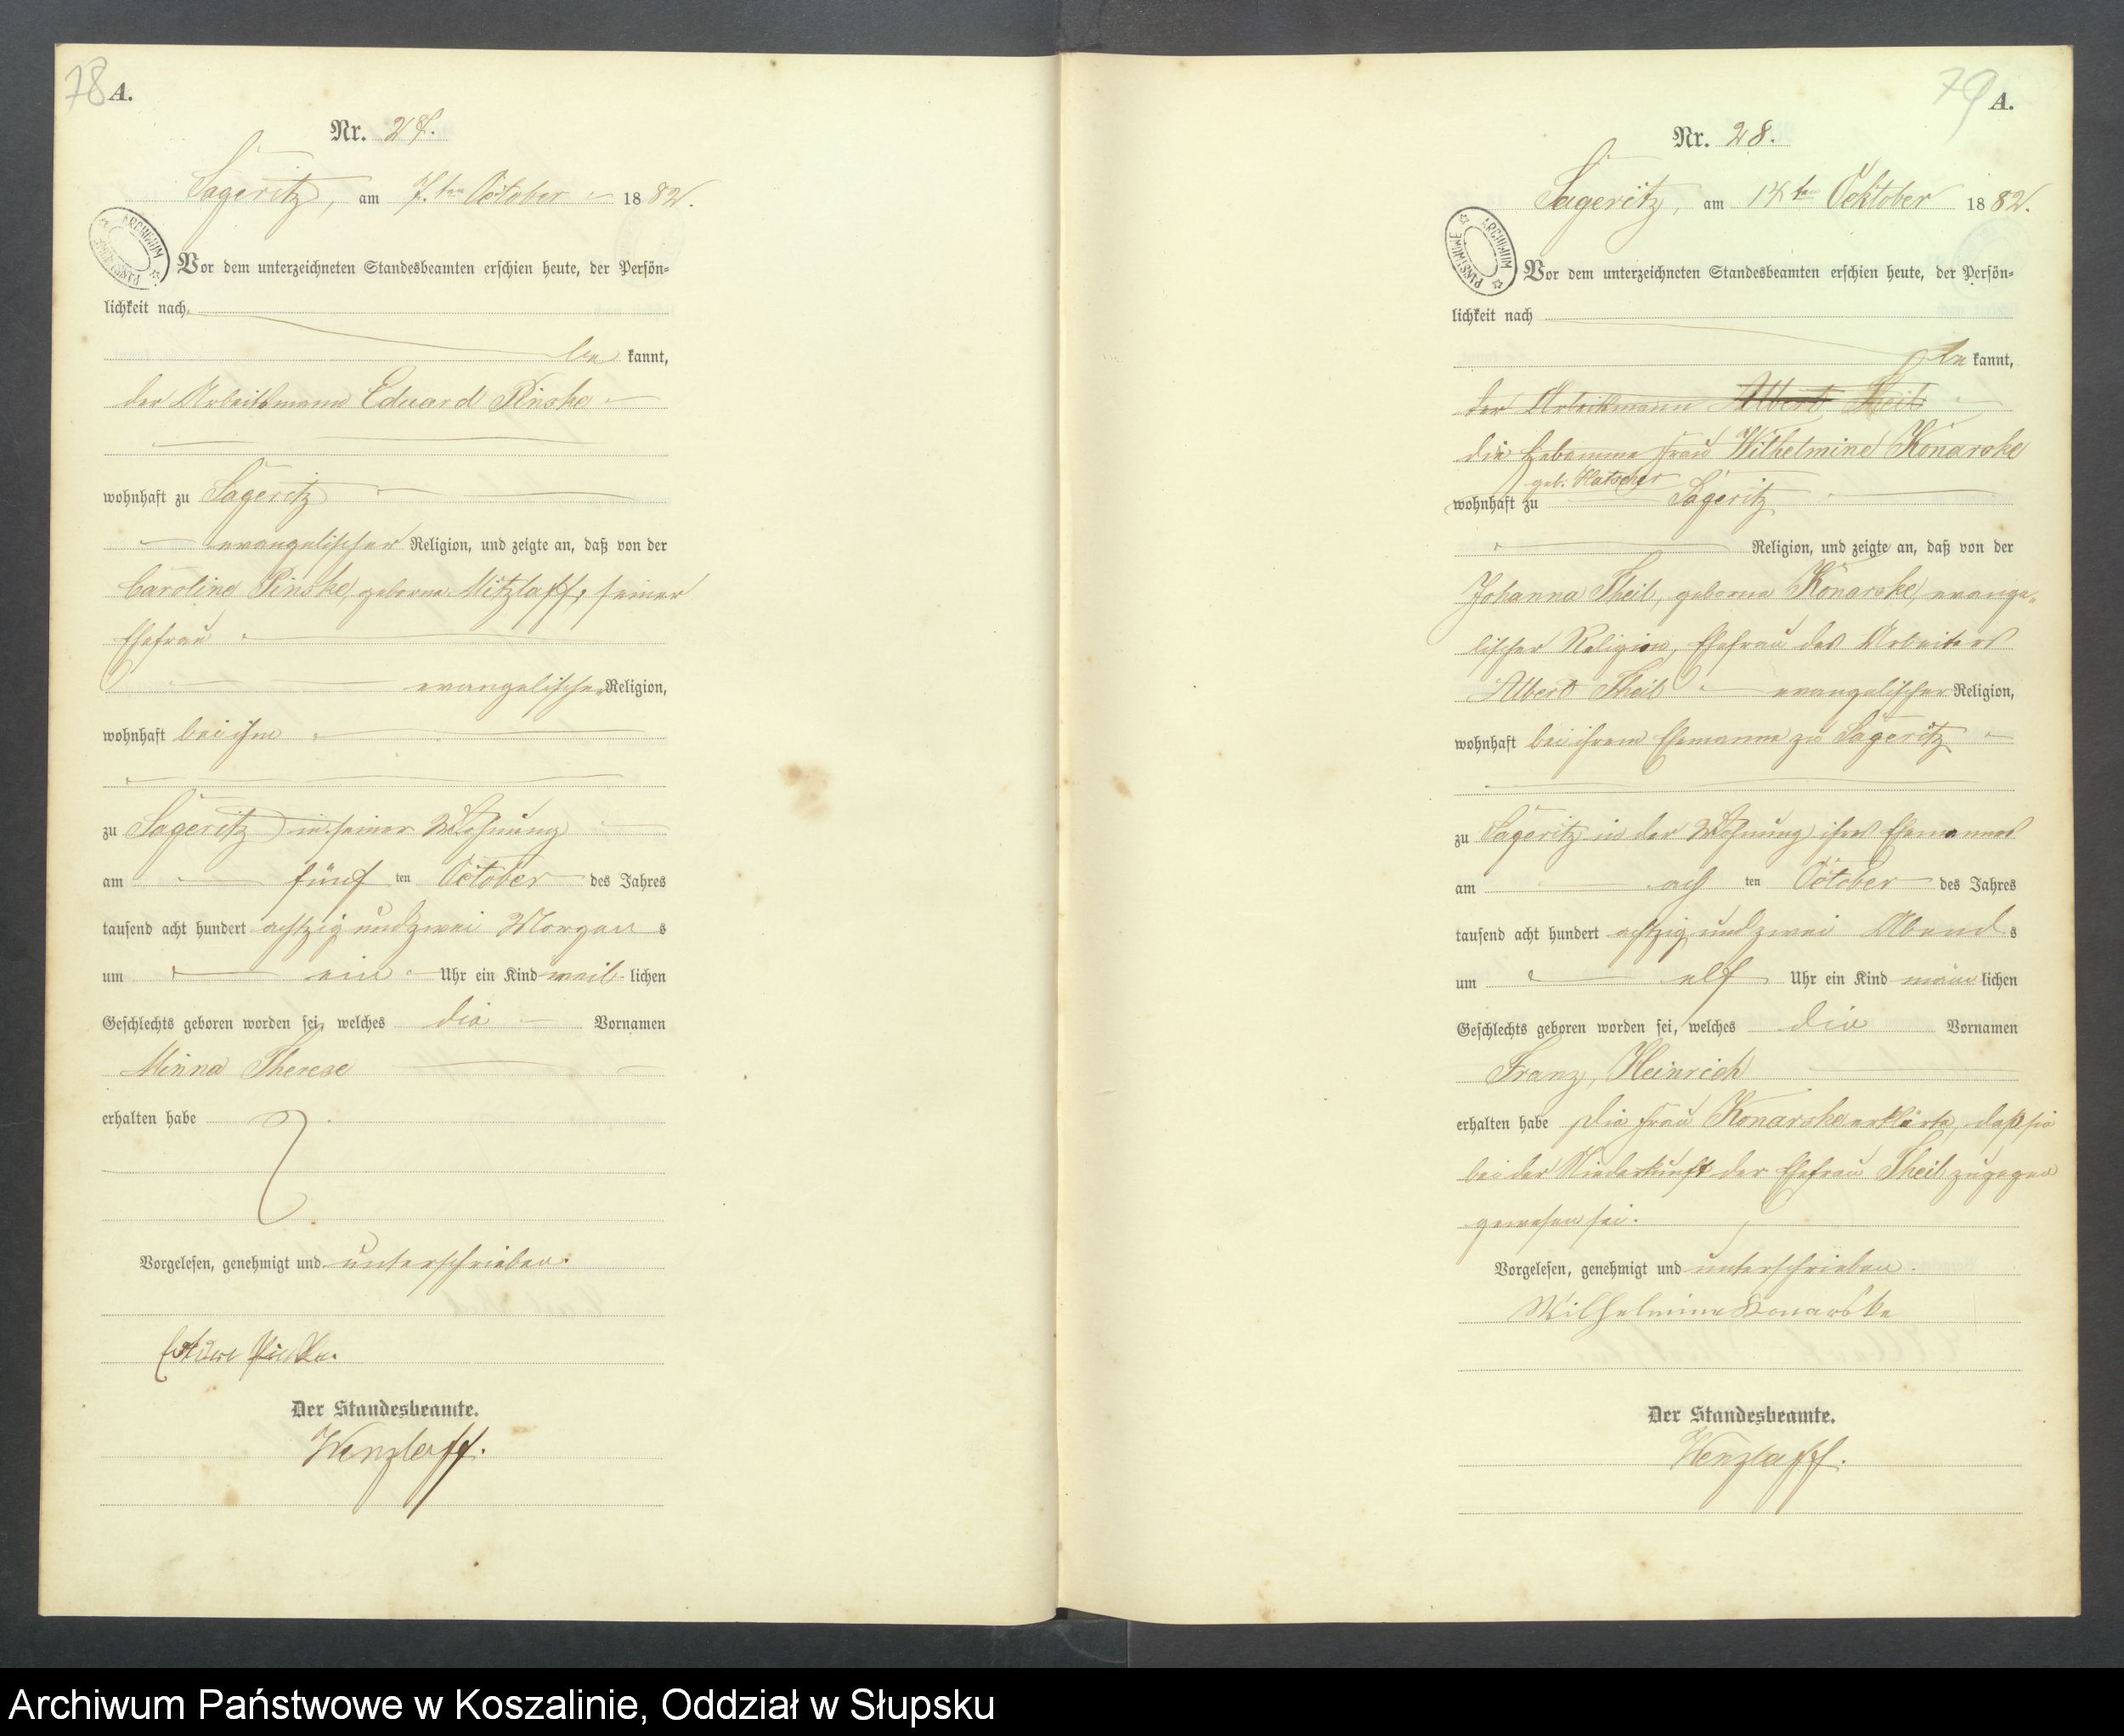 78 A.
Nr. 27.
Sageritz, am 7. ten October 1882.
ARCHIWUM PAŃSTWOWE
Vor dem unterzeichneten Standesbeamten erschien heute, der Persön=
lichkeit nach
be kannt,
der Arbeitsmann Eduard Pinske
wohnhaft zu Sageritz
evangelischer Religion, und zeigte an, daß von der
Caroline Pinske, geborne Mitzlaff, seiner
Ehefrau
evangelischer Religion,
wohnhaft bei ihm
zu Sageritz in seiner Wohnung
am fünf ten October des Jahres
tausend acht hundert achtzig und zwei Morgen s
um ein Uhr ein Kind weib lichen
Geschlechts geboren worden sei, welches die Vornamen
Minna Therese
erhalten habe
Vorgelesen, genehmigt und unterschrieben.
Pinske.
Der Standesbeamte.
Wenzlaff.
79 A.
Nr. 28.
Sageritz, am 14 ten Oektober 1882.
ARCHIWUM PAŃSTWOWE
Vor dem unterzeichneten Standesbeamten erschien heute, der Persön=
lichkeit nach
be kannt,
der Arbeitsmann Albert Theil
die Hebamme Frau Wilhelmine Konarske
geb. Hatscher
wohnhaft zu Sageritz
Religion, und zeigte an, daß von der
Johanna Theil, geborne Konarske, evange=
lischer Religion, Ehefrau des Arbeiters
Albert Theil evangelischer Religion,
wohnhaft bei ihrem Ehemanne zu Sageritz
zu Sageritz in der Wohnung ihres Ehemannes
am ach ten October des Jahres
tausend acht hundert achtzig und zwei Abend s
um elf Uhr ein Kind männ lichen
Geschlechts geboren worden sei, welches die Vornamen
Franz, Heinrich
erhalten habe die Frau Konarske erklärte, daß sie
bei der Niederkunft der Ehefrau Theil zugegen
gewesen sei.
Vorgelesen, genehmigt und unterschrieben.
Wilhelmine Konarske
Der Standesbeamte.
Wenzlaff.
Archiwum Państwowe w Koszalinie, Oddział w Słupsku